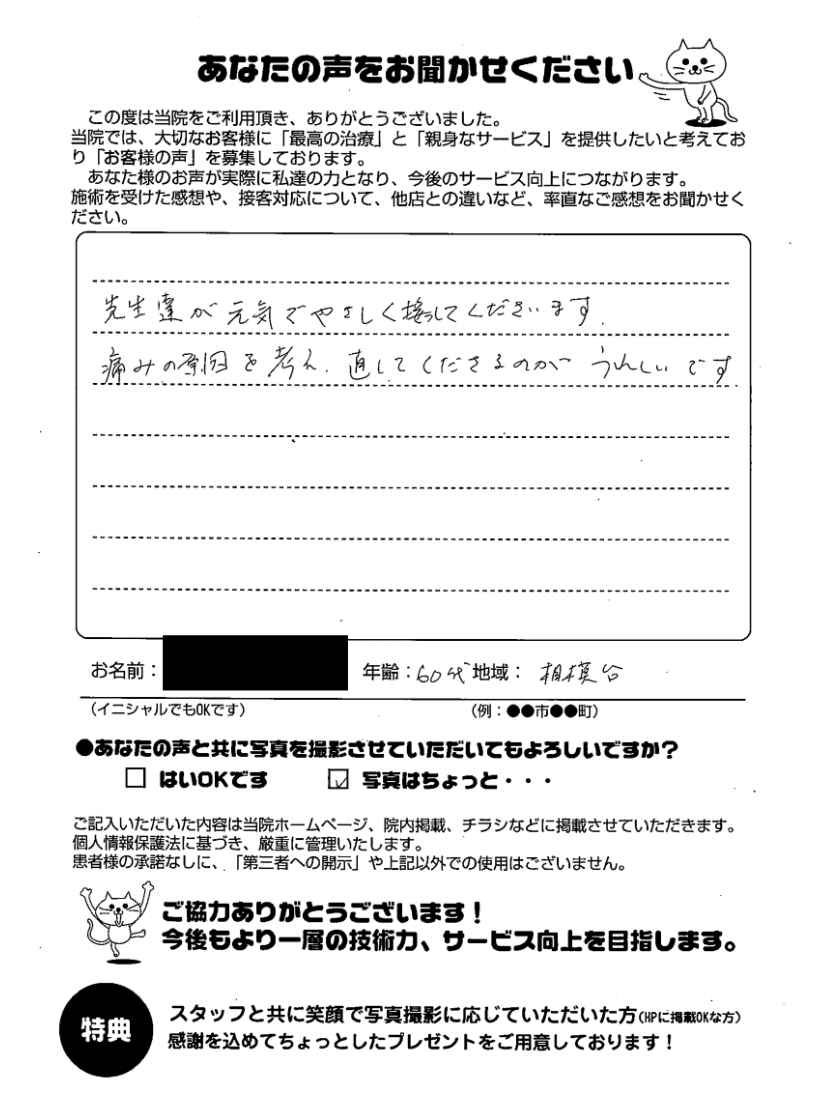 あなたの声をお聞かせください
この度は当院をご利用頂き、ありがとうございました。
当院では、大切なお客様に「最高の治療」と「親身なサービス」を提供したいと考えてお
り「お客様の声」を募集しております。
あなた様のお声が実際に私達の力となり、今後のサービス向上につながります。
施術を受けた感想や、接客対応について、他店との違いなど、率直なご感想をお聞かせく
ださい。
先生達が元気でやさしく接してくださいます.
痛みの原因を考え、直してくださるのがうれしいです
お名前： 年齢：60代 地域： 相模台
（イニシャルでもOKです） （例：●●市●●町）
●あなたの声と共に写真を撮影させていただいてもよろしいですか？
□ はいOKです ☑ 写真はちょっと・・・
ご記入いただいた内容は当院ホームページ、院内掲載、チラシなどに掲載させていただきます。
個人情報保護法に基づき、厳重に管理いたします。
患者様の承諾なしに、「第三者への開示」や上記以外での使用はございません。
ご協力ありがとうございます！
今後もより一層の技術力、サービス向上を目指します。
特典
スタッフと共に笑顔で写真撮影に応じていただいた方（HPに掲載OKな方）
感謝を込めてちょっとしたプレゼントをご用意しております！